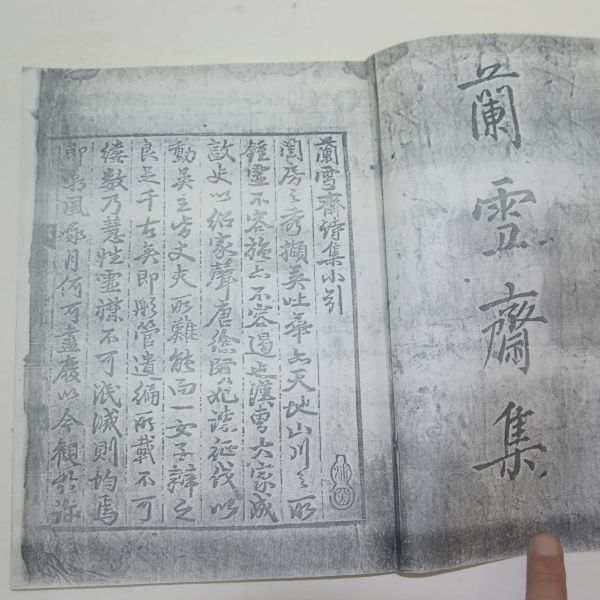 蘭雪齋集
蘭雪齋詩集小引
閨房之秀擷英吐華亦天地山川之所
鍾靈不容施亦不容遏也漢曹大家成
敦史以紹家聲唐徐賢妃諫征伐以
動英主皆丈夫所難能而一女子辦之
良足千古矣即彤管遺編所載不可
縷數乃慧性靈襟不可泯滅則均焉
即嘲風咏月何可盡廢以今觀於許